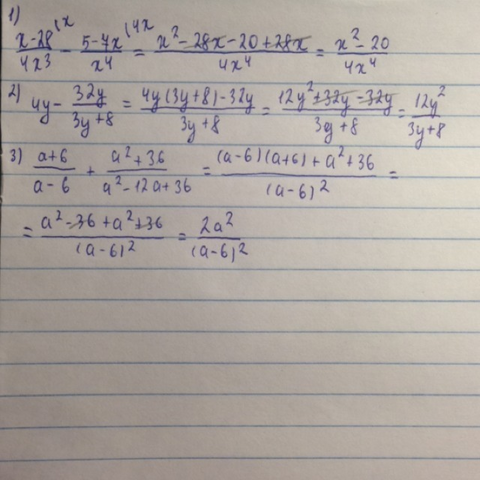 1)
(x-28^(x)/4x³ - (5-7x)^(4x)/x⁴ = (x²-28x-20+28x)/4x⁴ = (x²-20)/4x⁴
2) 4y - 32y/(3y+8) = (4y(3y+8)-32y)/(3y+8) = (12y²+32y-32y)/(3y+8) = 12y²/(3y+8)
3) (a+6)/(a-6) + (a²+36)/(a²-12a+36) = ((a-6)(a+6)+a²+36)/(a-6)² =
= (a²-36+a²+36)/(a-6)² = 2a²/(a-6)²